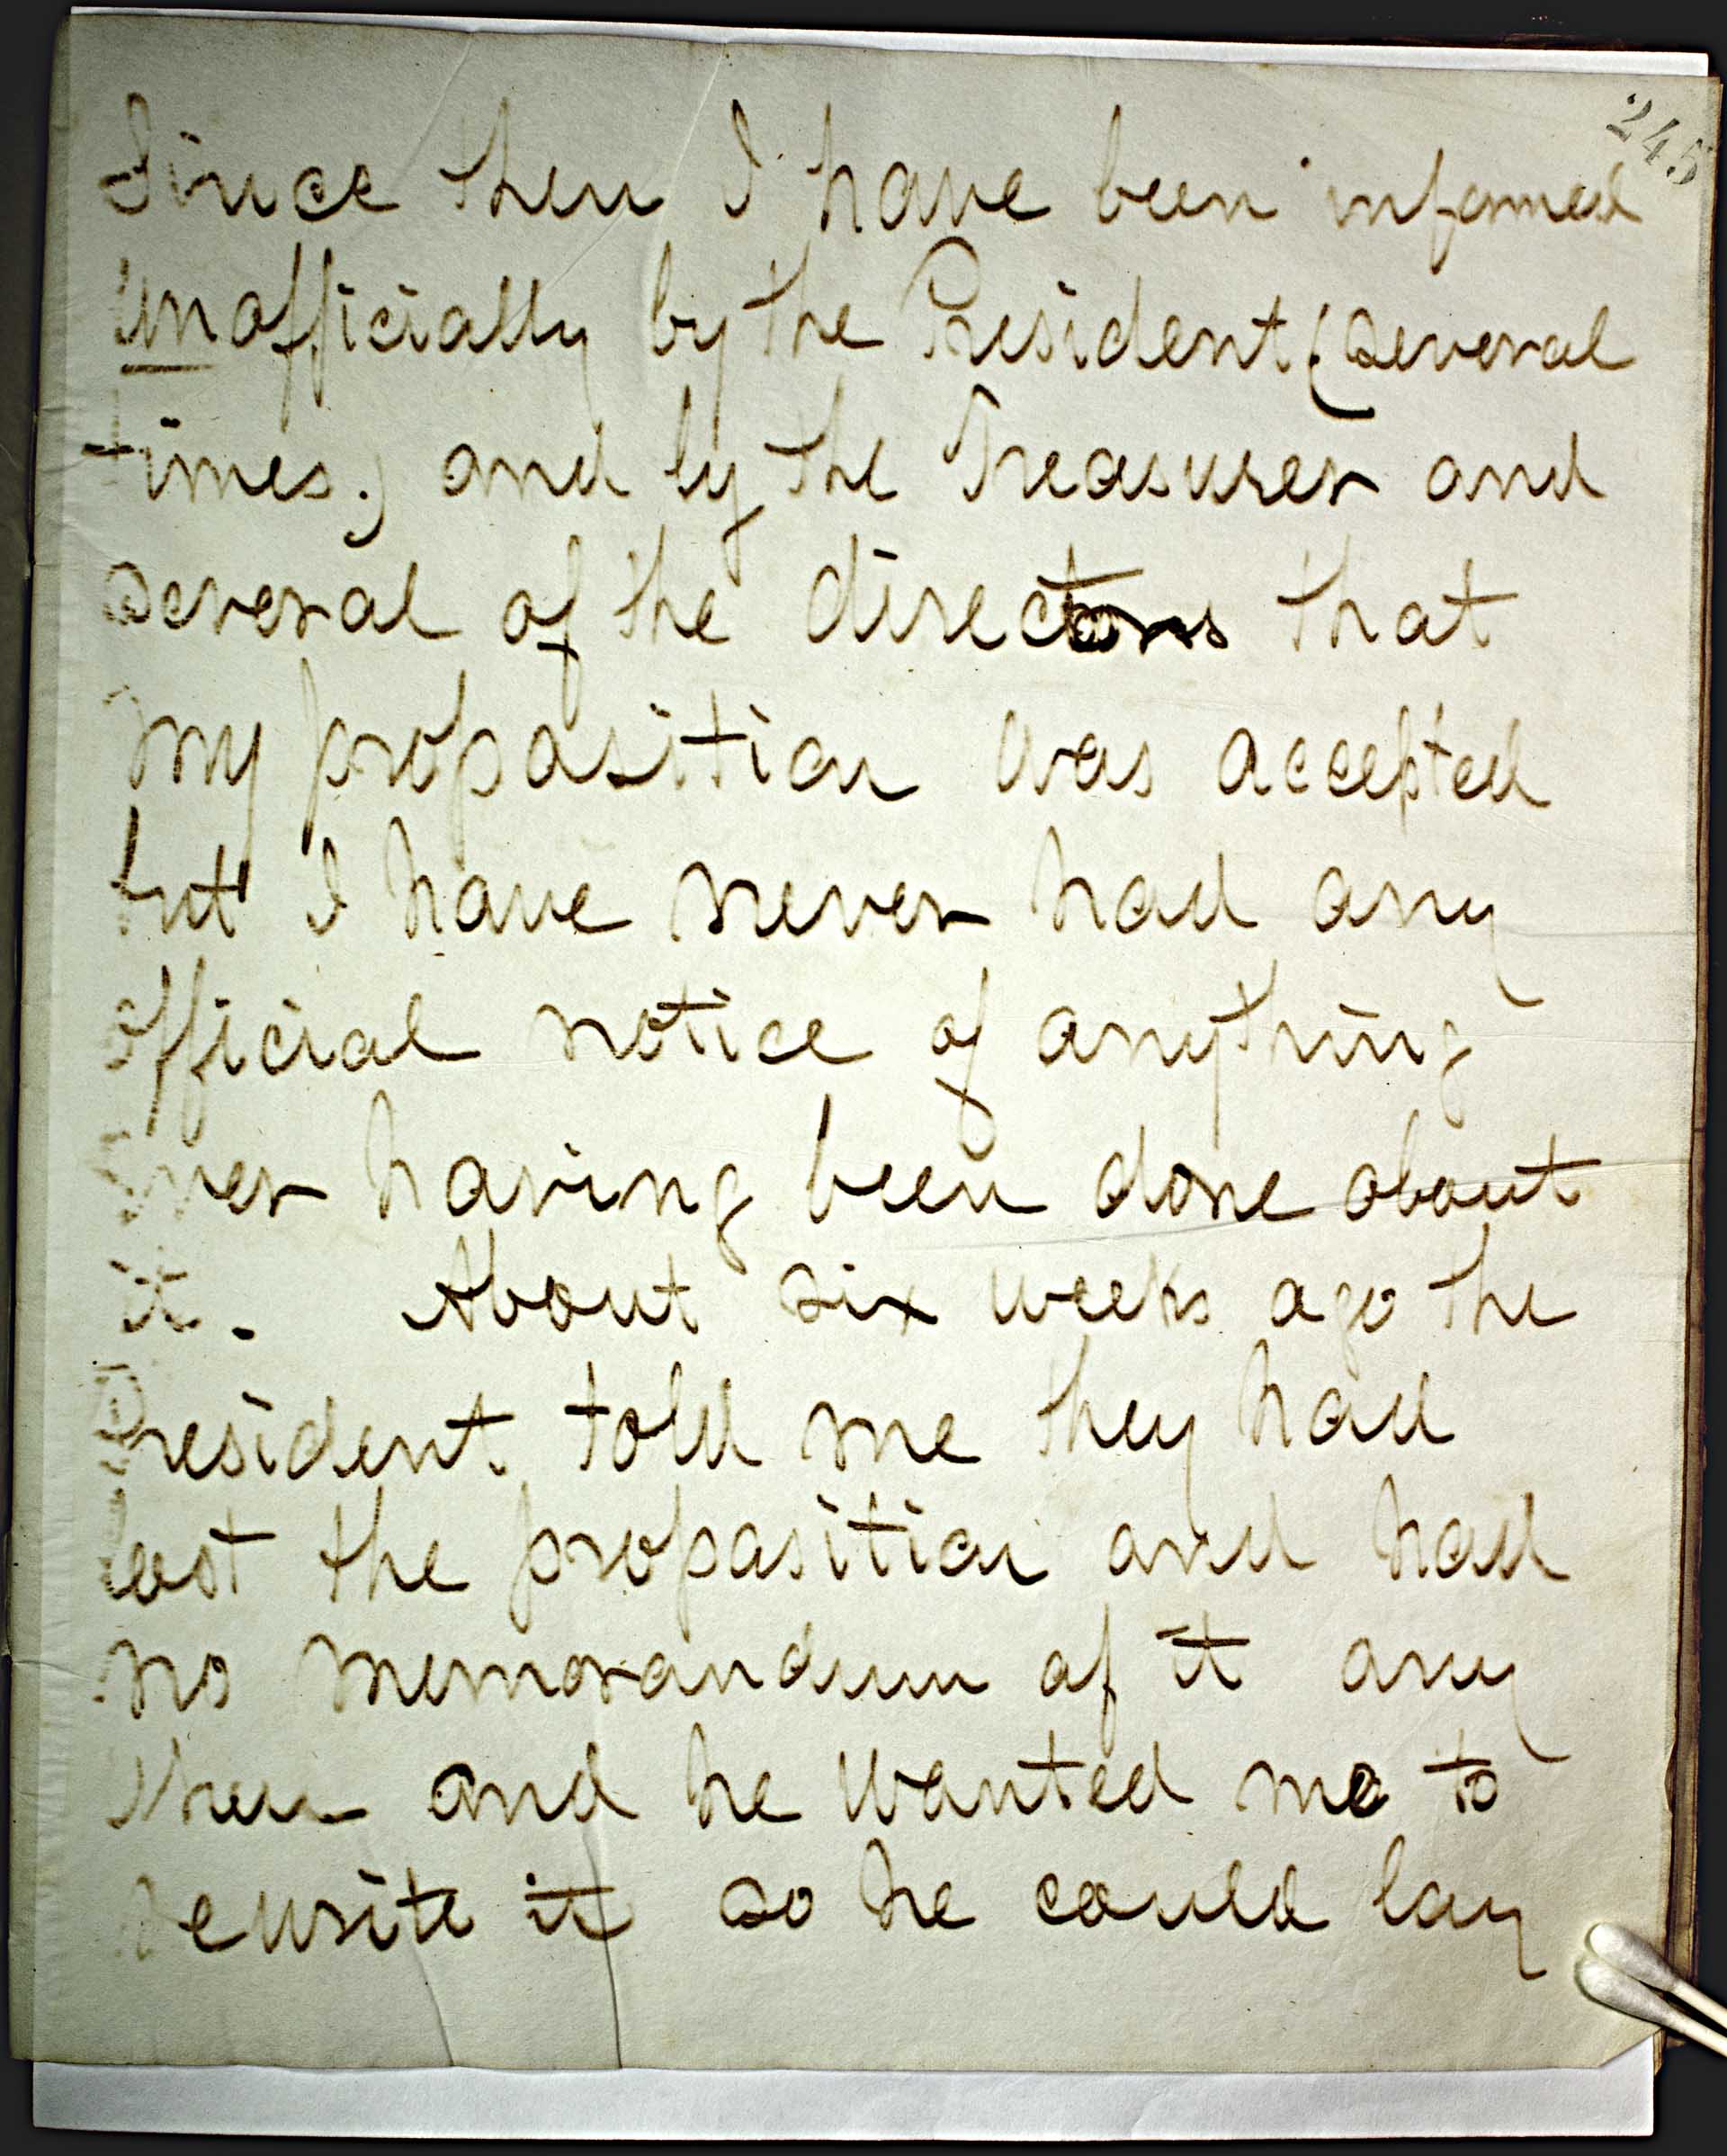 245
Since then I have been informed
unofficially by the President (several
times.) and by the Treasurer and
several of the directors that
my proposition was accepted
but I have never had any
official notice of anything
ever having been done about
it. About six weeks ago the
President told me they had
lost the proposition and had
no memorandum of it any
where and he wanted me to
rewrite it so he could lay